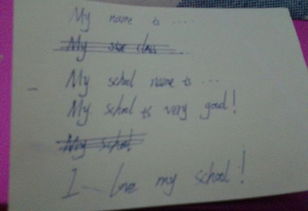 My name is ....
My size class
My school name is ...
My school is very good!
My school
I love my school!